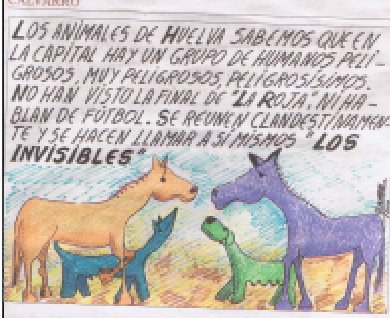 CALVARRO
LOS ANIMALES DE HUELVA SABEMOS QUE EN
LA CAPITAL HAY UN GRUPO DE HUMANOS PELI-
GROSOS, MUY PELIGROSOS, PELIGROSÍSIMOS.
NO HAN VISTO LA FINAL DE "LA ROJA", NI HA-
BLAN DE FÚTBOL. SE REUNEN CLANDESTINAMEN-
TE Y SE HACEN LLAMAR A SÍ MISMOS "LOS
INVISIBLES"